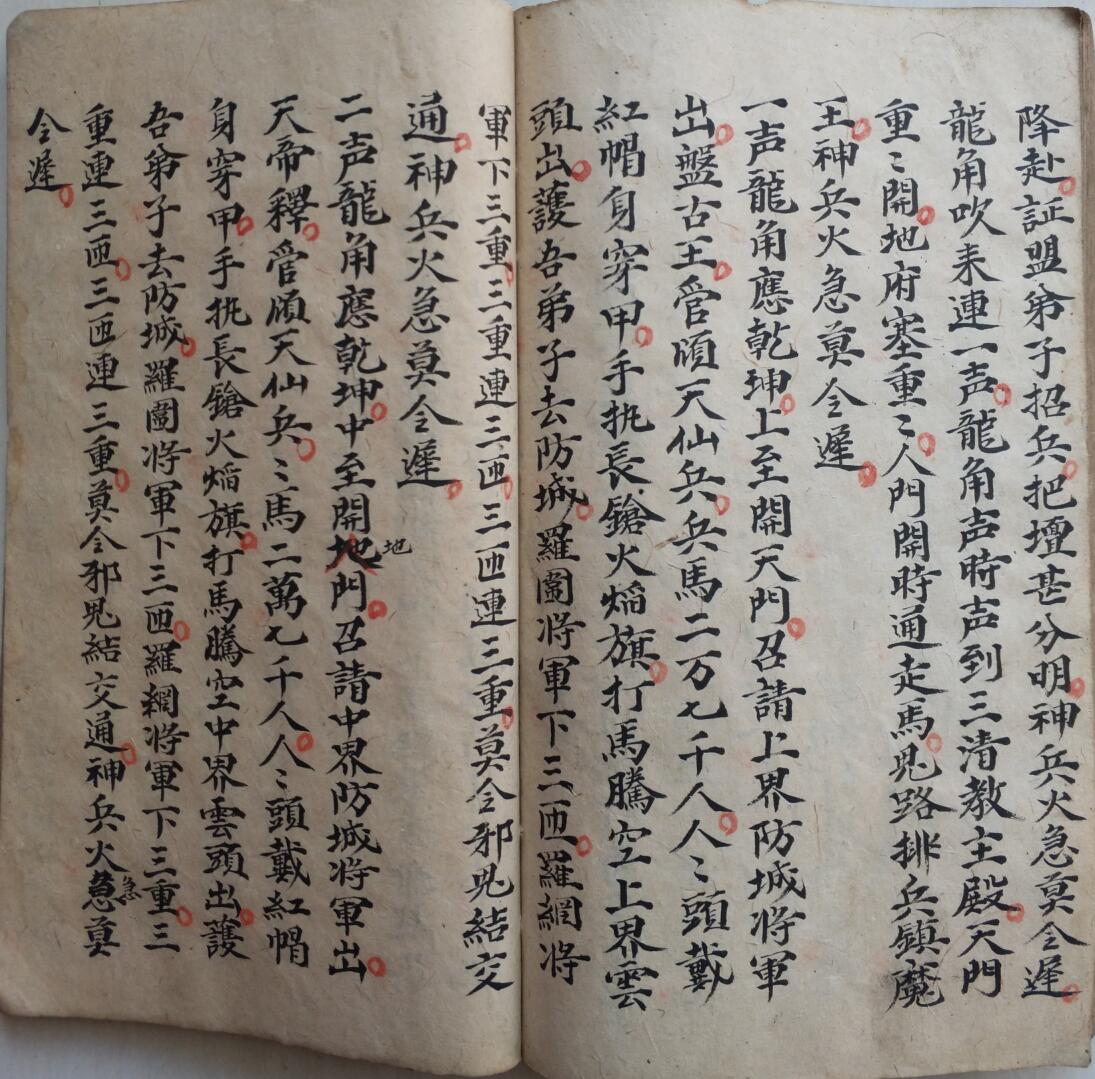 降赴。証盟弟子招兵。把壇甚分明。神兵火急莫令遲。
龍角吹来連一声。龍角声時声到三清教主殿。天門
重〻開。地府塞重〻。人門開時通走馬。鬼路排兵鎮魔
王。神兵火急莫令遲。
一声龍角應乾坤。上至開天門。召請上界防城将軍
出。盤古王。管頒天仙兵。兵馬二万七千人。人〻頭戴
紅帽身穿甲。手执長鎗火焰旗。打馬騰空上界雲
頭出。護吾弟子去防城。羅圖将軍下三匝。羅網将
軍下三重。三重連三匝。三匝連三重。莫令邪鬼結交
通。神兵火急莫令遲。
二声龍角應乾坤。中至開地門。召請中界防城将軍出。
地
天帝釋。管頒天仙兵。〻馬二萬七千人。人〻頭戴紅帽
身穿甲。手执長鎗火焰旗。打馬騰空中界雲頭出。護
吾弟子去防城。羅圖将軍下三匝。羅網将軍下三重。三
重連三匝。三匝連三重。莫令邪鬼結交通。神兵火急莫
急
令遲。